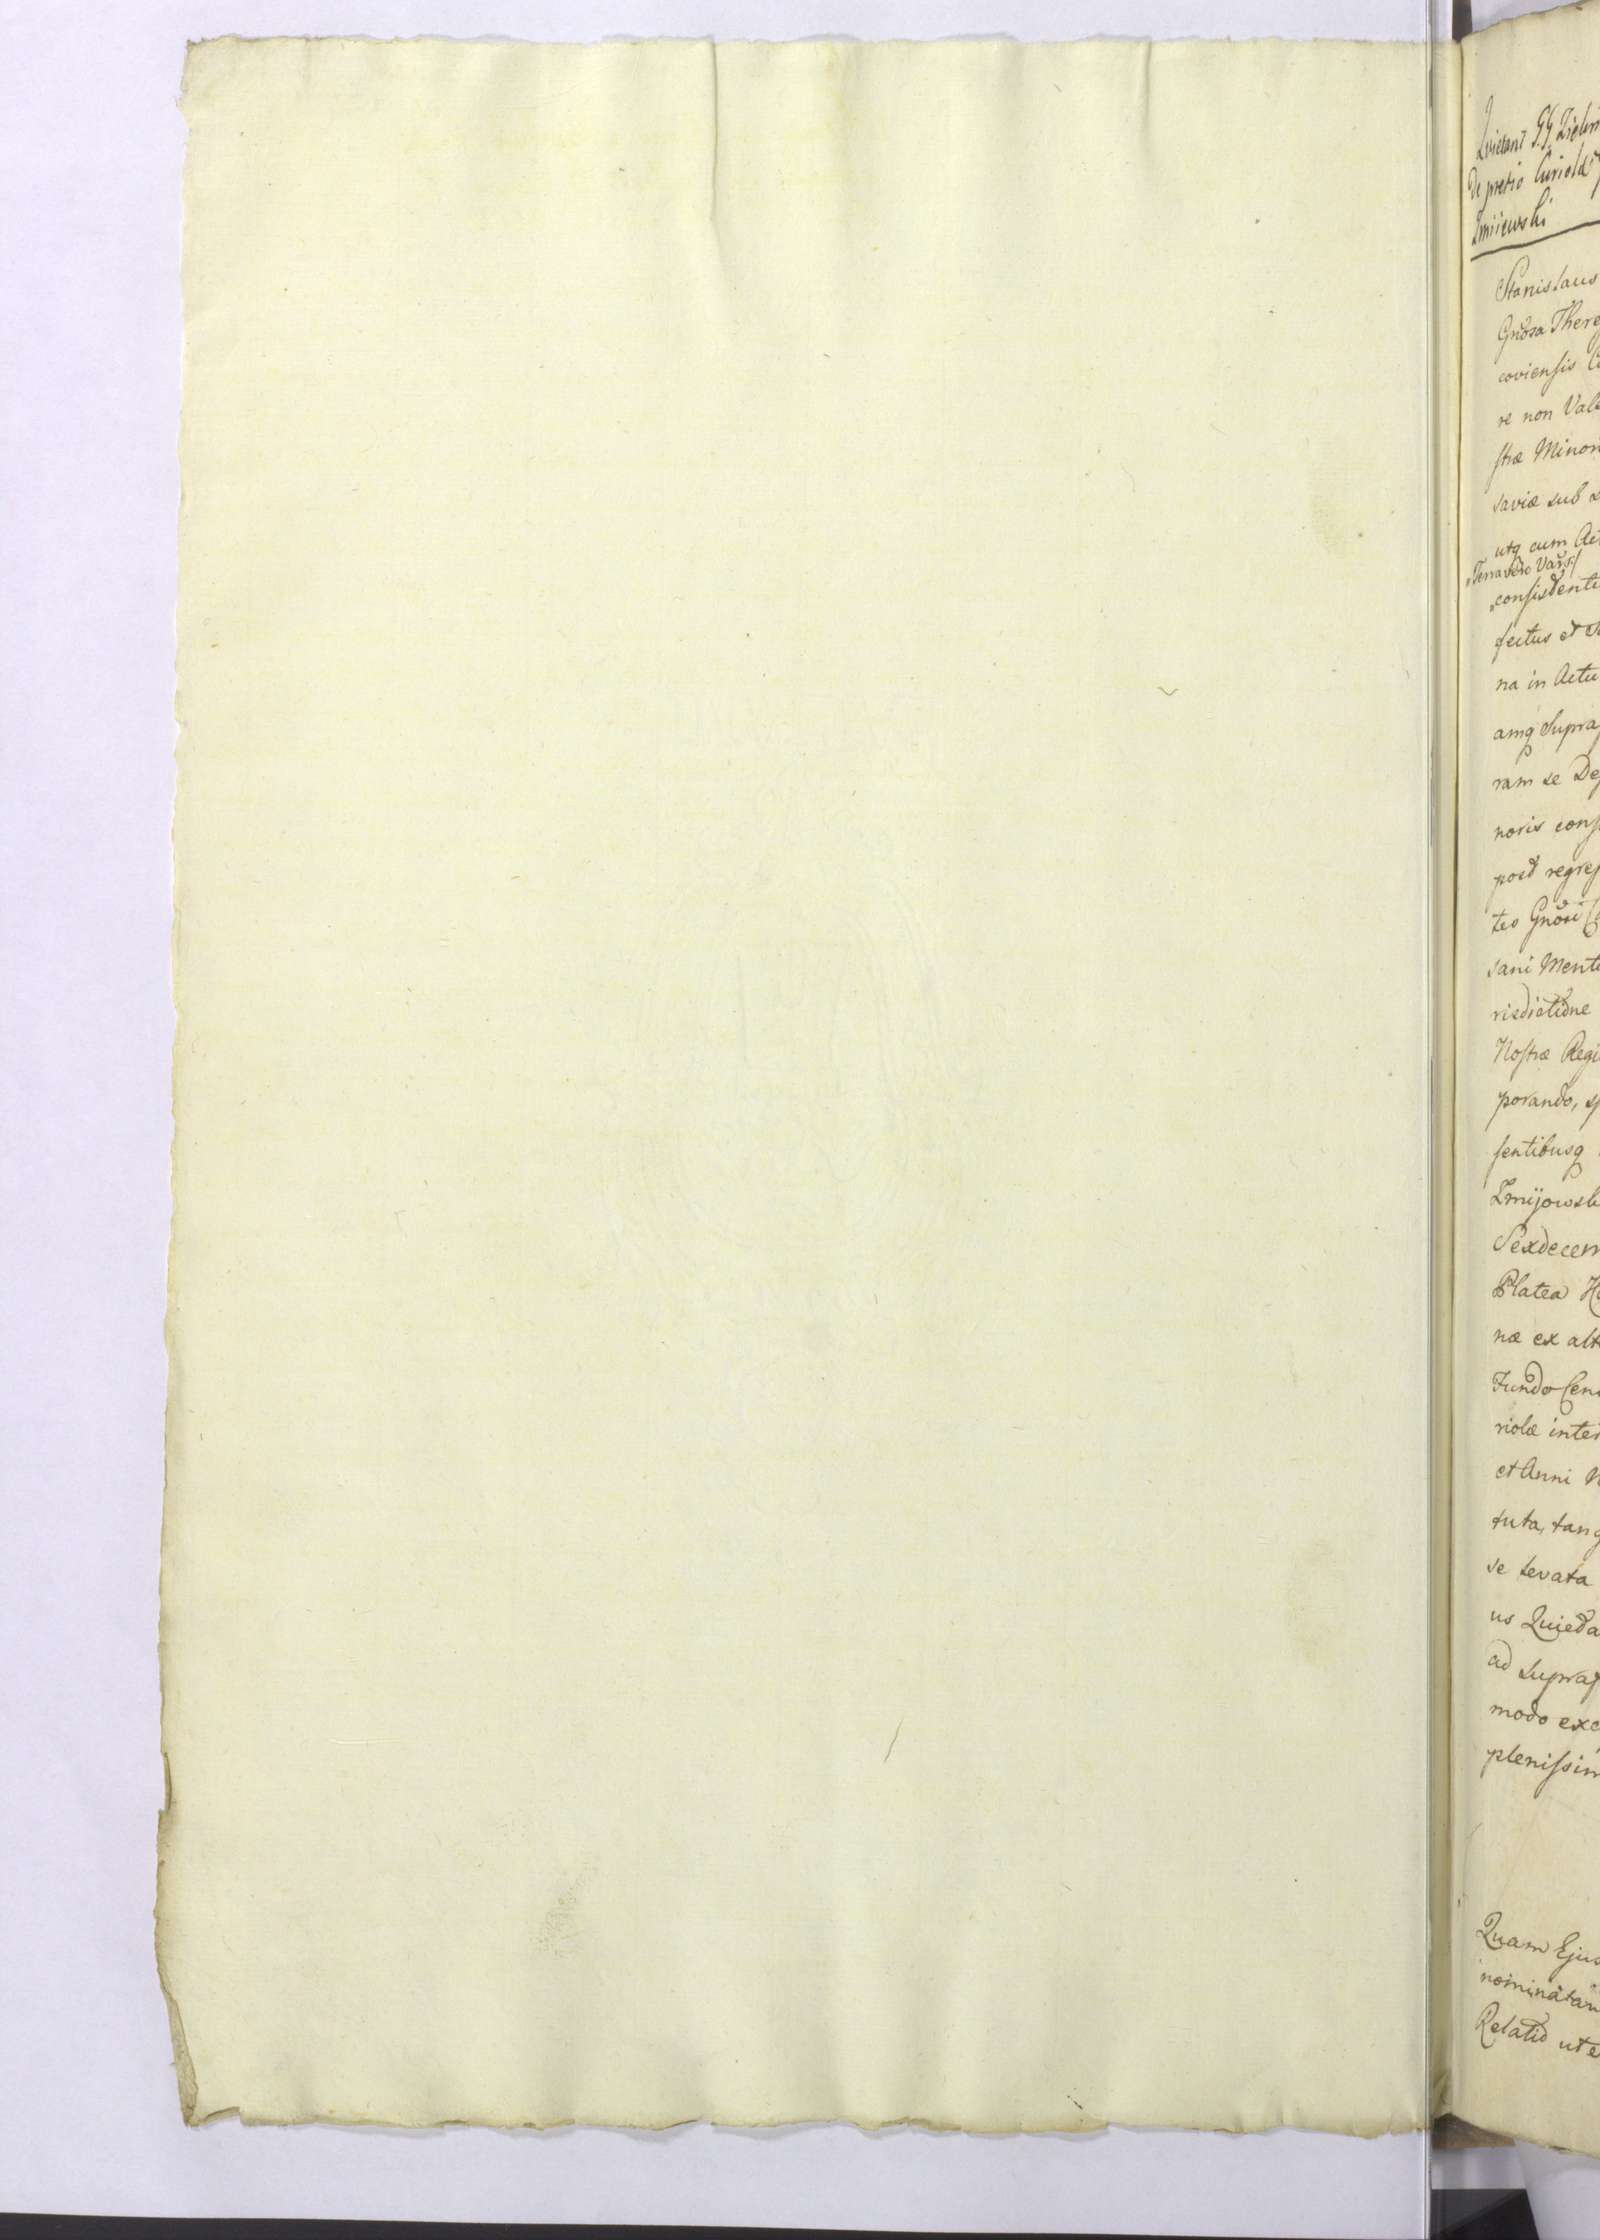 Quietant GG Zielin
De pretio Curiolæ
Zmiiewski
Stanislaus
Gnosa There
coviensis
re non Vale
stræ Minor
saviæ sub
utq cum Act
Terra vero Vars
consistenti
fectus et
na in Actu
amq Supra
ram se Dep
noris cons
post regres
tes Gnosi
sani Mente
risdictione
Nostræ Regi
porando, sp
sentibusq
Zmijowsk
Sexdecem
Platea H
næ ex alt
Fundo Cen
riolæ inter
et Anni
tuta, tanq
se levata
us Quieta
ad supra
modo exc
plenissim
Quam Ejus
nominatam
Relatio ut